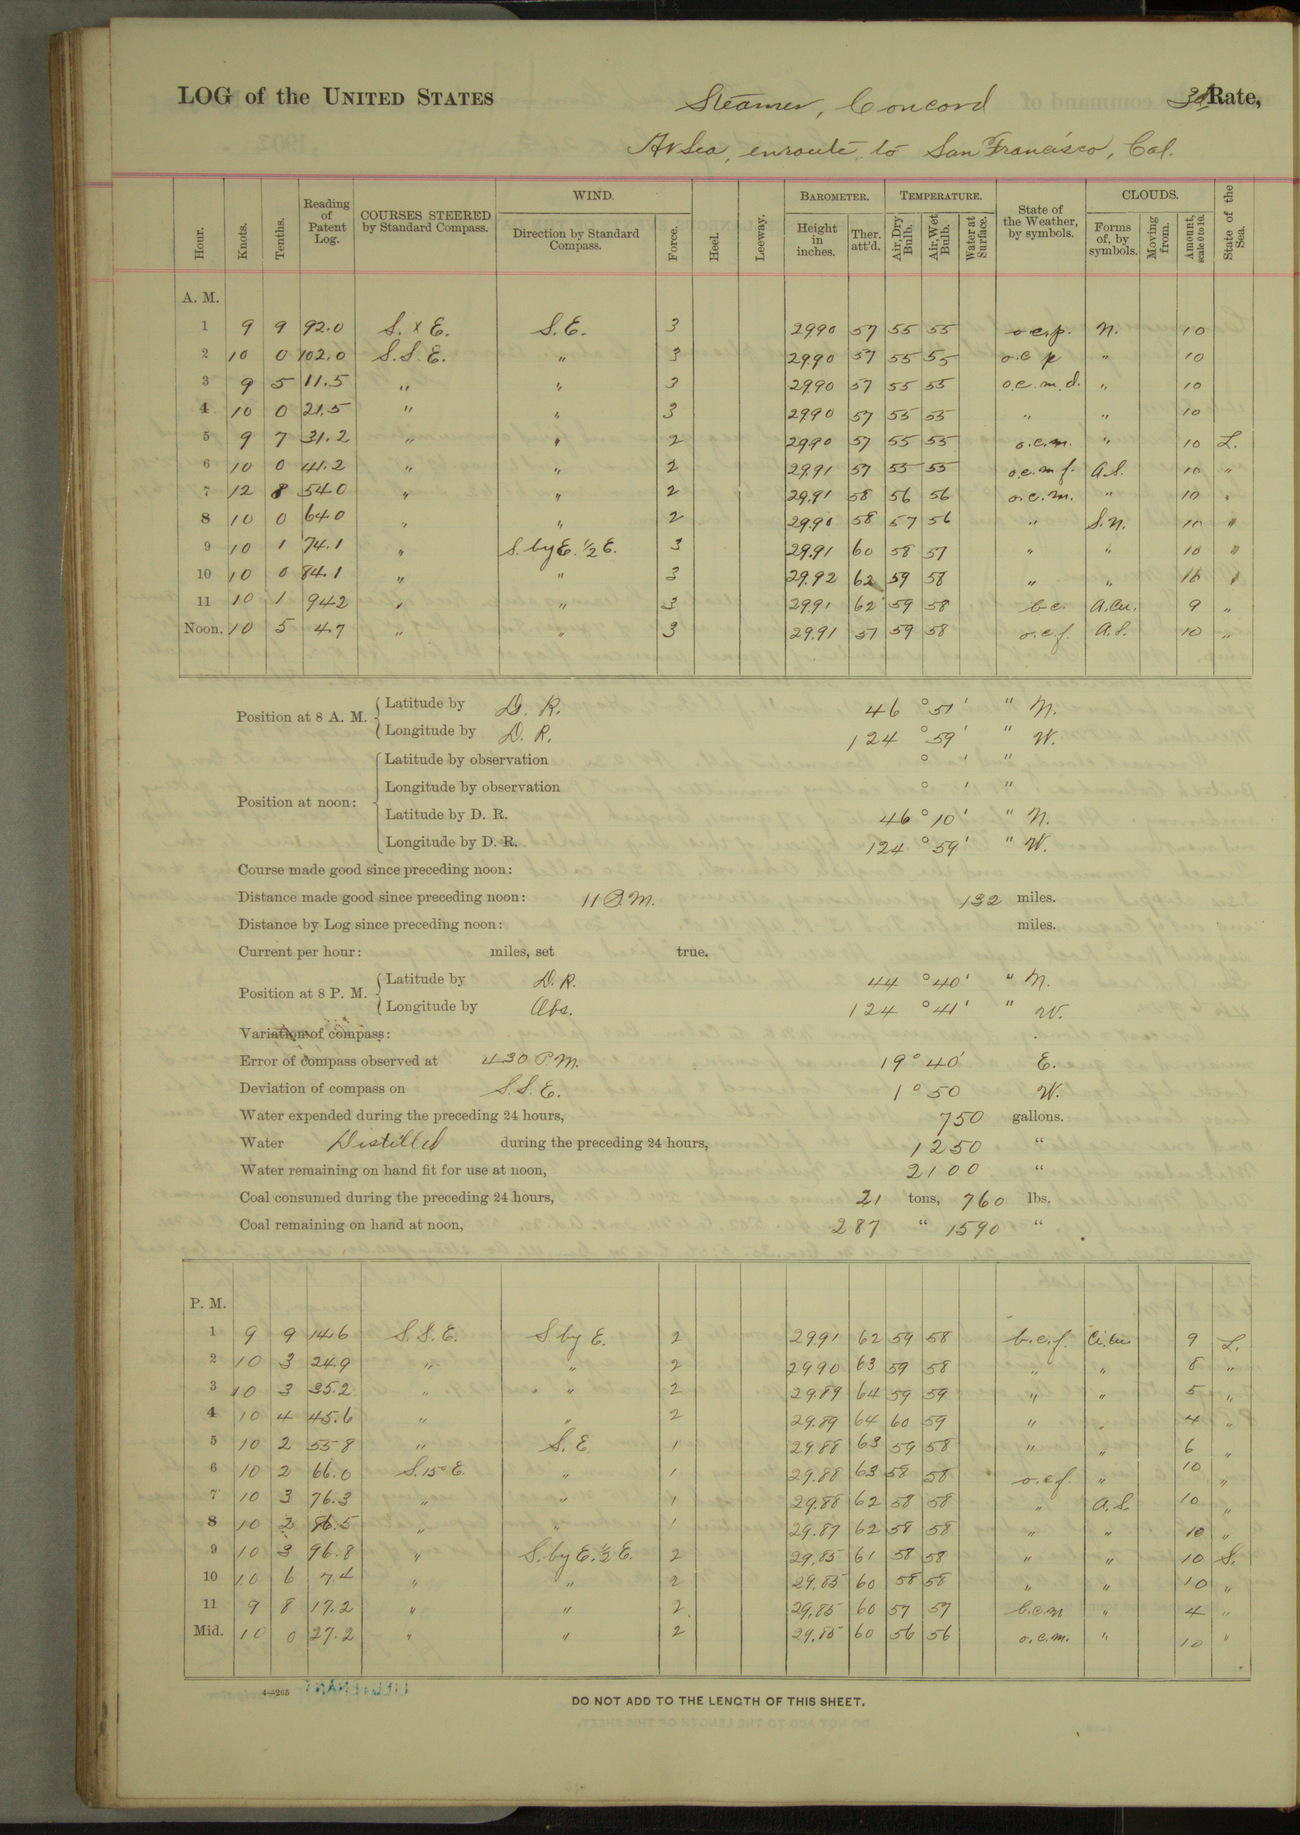 LOG of the UNITED STATES Steamer, Concord 3d Rate,
At Sea, enroute to San Francisco, Cal.
Hour. Knots. Tenths. Reading of Patent Log. COURSES STEERED by Standard Compass. WIND. Direction by Standard Compass. Force. Heel. Leeway. BAROMETER. Height in inches. Ther. att'd. TEMPERATURE. Air, Dry Bulb. Air, Wet Bulb. Water at Surface. State of the Weather, by symbols. CLOUDS. Forms of, by symbols. Moving from. Amount, scale 0 to 10. State of the Sea.
A. M.
1 9 9 92.0 S. x E. S.E. 3 29.90 57 55 55 o.c.p. N. 10
2 10 0 102.0 S.S.E. " 3 29.90 57 55 55 o.c.p " 10
3 9 5 11.5 " " 3 29.90 57 55 55 o.c.m.d. " 10
4 10 0 21.5 " " 3 29.90 57 55 55 " " 10
5 9 7 31.2 " " 2 29.90 57 55 55 o.c.m. " 10 L.
6 10 0 41.2 " " 2 29.91 57 55 55 o.c.m.f. A.S. 10 "
7 12 8 54.0 " " 2 29.91 58 56 56 o.c.m. " 10 "
8 10 0 64.0 " " 2 29.90 58 57 56 " S.N. 10 "
9 10 1 74.1 " S. by E. 1/2 E. 3 29.91 60 58 57 " " 10 "
10 10 0 84.1 " " 3 29.92 62 59 58 " " 10 "
11 10 1 94.2 " " 3 29.91 62 59 58 b.c. A.Cu. 9 "
Noon. 10 5 4.7 " " 3 29.91 57 59 58 o.c.f. A.S. 10 "
Position at 8 A. M. Latitude by D. R. 46 ° 51 ' " N.
Longitude by D. R. 124 ° 59 ' " W.
Position at noon: Latitude by observation ° ' "
Longitude by observation ° ' "
Latitude by D. R. 46 ° 10 ' " N.
Longitude by D. R. 124 ° 59 ' " W.
Course made good since preceding noon:
Distance made good since preceding noon: 11 P.M. 132 miles.
Distance by Log since preceding noon: miles.
Current per hour: miles, set true.
Position at 8 P. M. Latitude by D. R. 44 ° 40 ' " N.
Longitude by Obs. 124 ° 41 ' " W.
Variation of compass:
Error of compass observed at 4 30 P.M. 19° 40' E.
Deviation of compass on S.S.E. 1° 50 W.
Water expended during the preceding 24 hours, 750 gallons.
Water Distilled during the preceding 24 hours, 1250 "
Water remaining on hand fit for use at noon, 2100 "
Coal consumed during the preceding 24 hours, 21 tons, 760 lbs.
Coal remaining on hand at noon, 287 " 1590 "
P. M.
1 9 9 14.6 S.S.E. S by E. 2 29.91 62 59 58 b.c.f. Ci.Cu 9 L.
2 10 3 24.9 " " 2 29.90 63 59 58 " " 8 "
3 10 3 35.2 " " 2 29.89 64 59 59 " " 5 "
4 10 4 45.6 " " 2 29.89 64 60 59 " " 4 "
5 10 2 55.8 " S.E 1 29.88 63 59 58 " " 6 "
6 10 2 66.0 S.15°E. " 1 29.88 63 58 58 o.c.f. " 10 "
7 10 3 76.3 " " 1 29.88 62 58 58 " A.S. 10 "
8 10 2 86.5 " " 1 29.87 62 58 58 " " 10 "
9 10 3 96.8 " S. by E. 1/2 E. 2 29.85 61 58 58 " " 10 S.
10 10 6 7.4 " " 2 29.85 60 58 58 " " 10 "
11 9 8 17.2 " " 2 29.85 60 57 57 b.c.m " 4 "
Mid. 10 0 27.2 " " 2 29.85 60 56 56 o.c.m. " 10 "
4—265
DO NOT ADD TO THE LENGTH OF THIS SHEET.